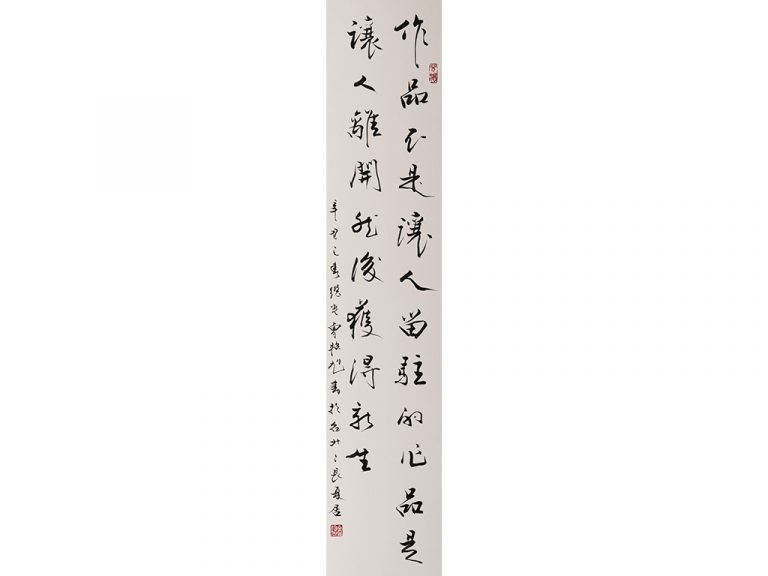 作品不是讓人留駐的作品是
讓人離開然後獲得新生
辛丑之春書於台北之長夏居